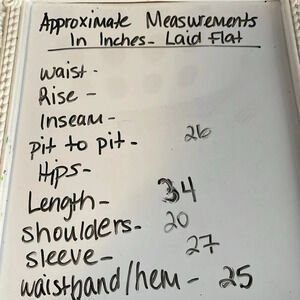 Approximate Measurements
In Inches- Laid Flat
waist -
Rise -
Inseam -
pit to pit - 26
Hips-
Length- 34
shoulders- 20
sleeve- 27
waistband/hem - 25